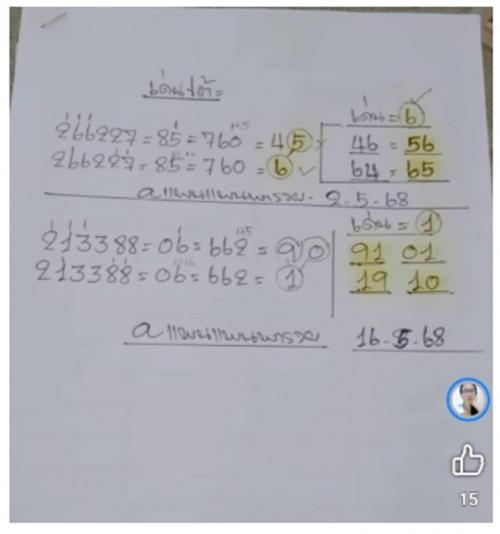 เด่นใต้=
266227 = 85 = 760 = 45
266227 = 85 = 760 = 6
เด่น = 6
46 = 56
64 = 65
2.5.68
213388 = 06 = 662 = 90
213388 = 06 = 662 = 1
เด่น = 1
91 01
19 10
16-5.68
15